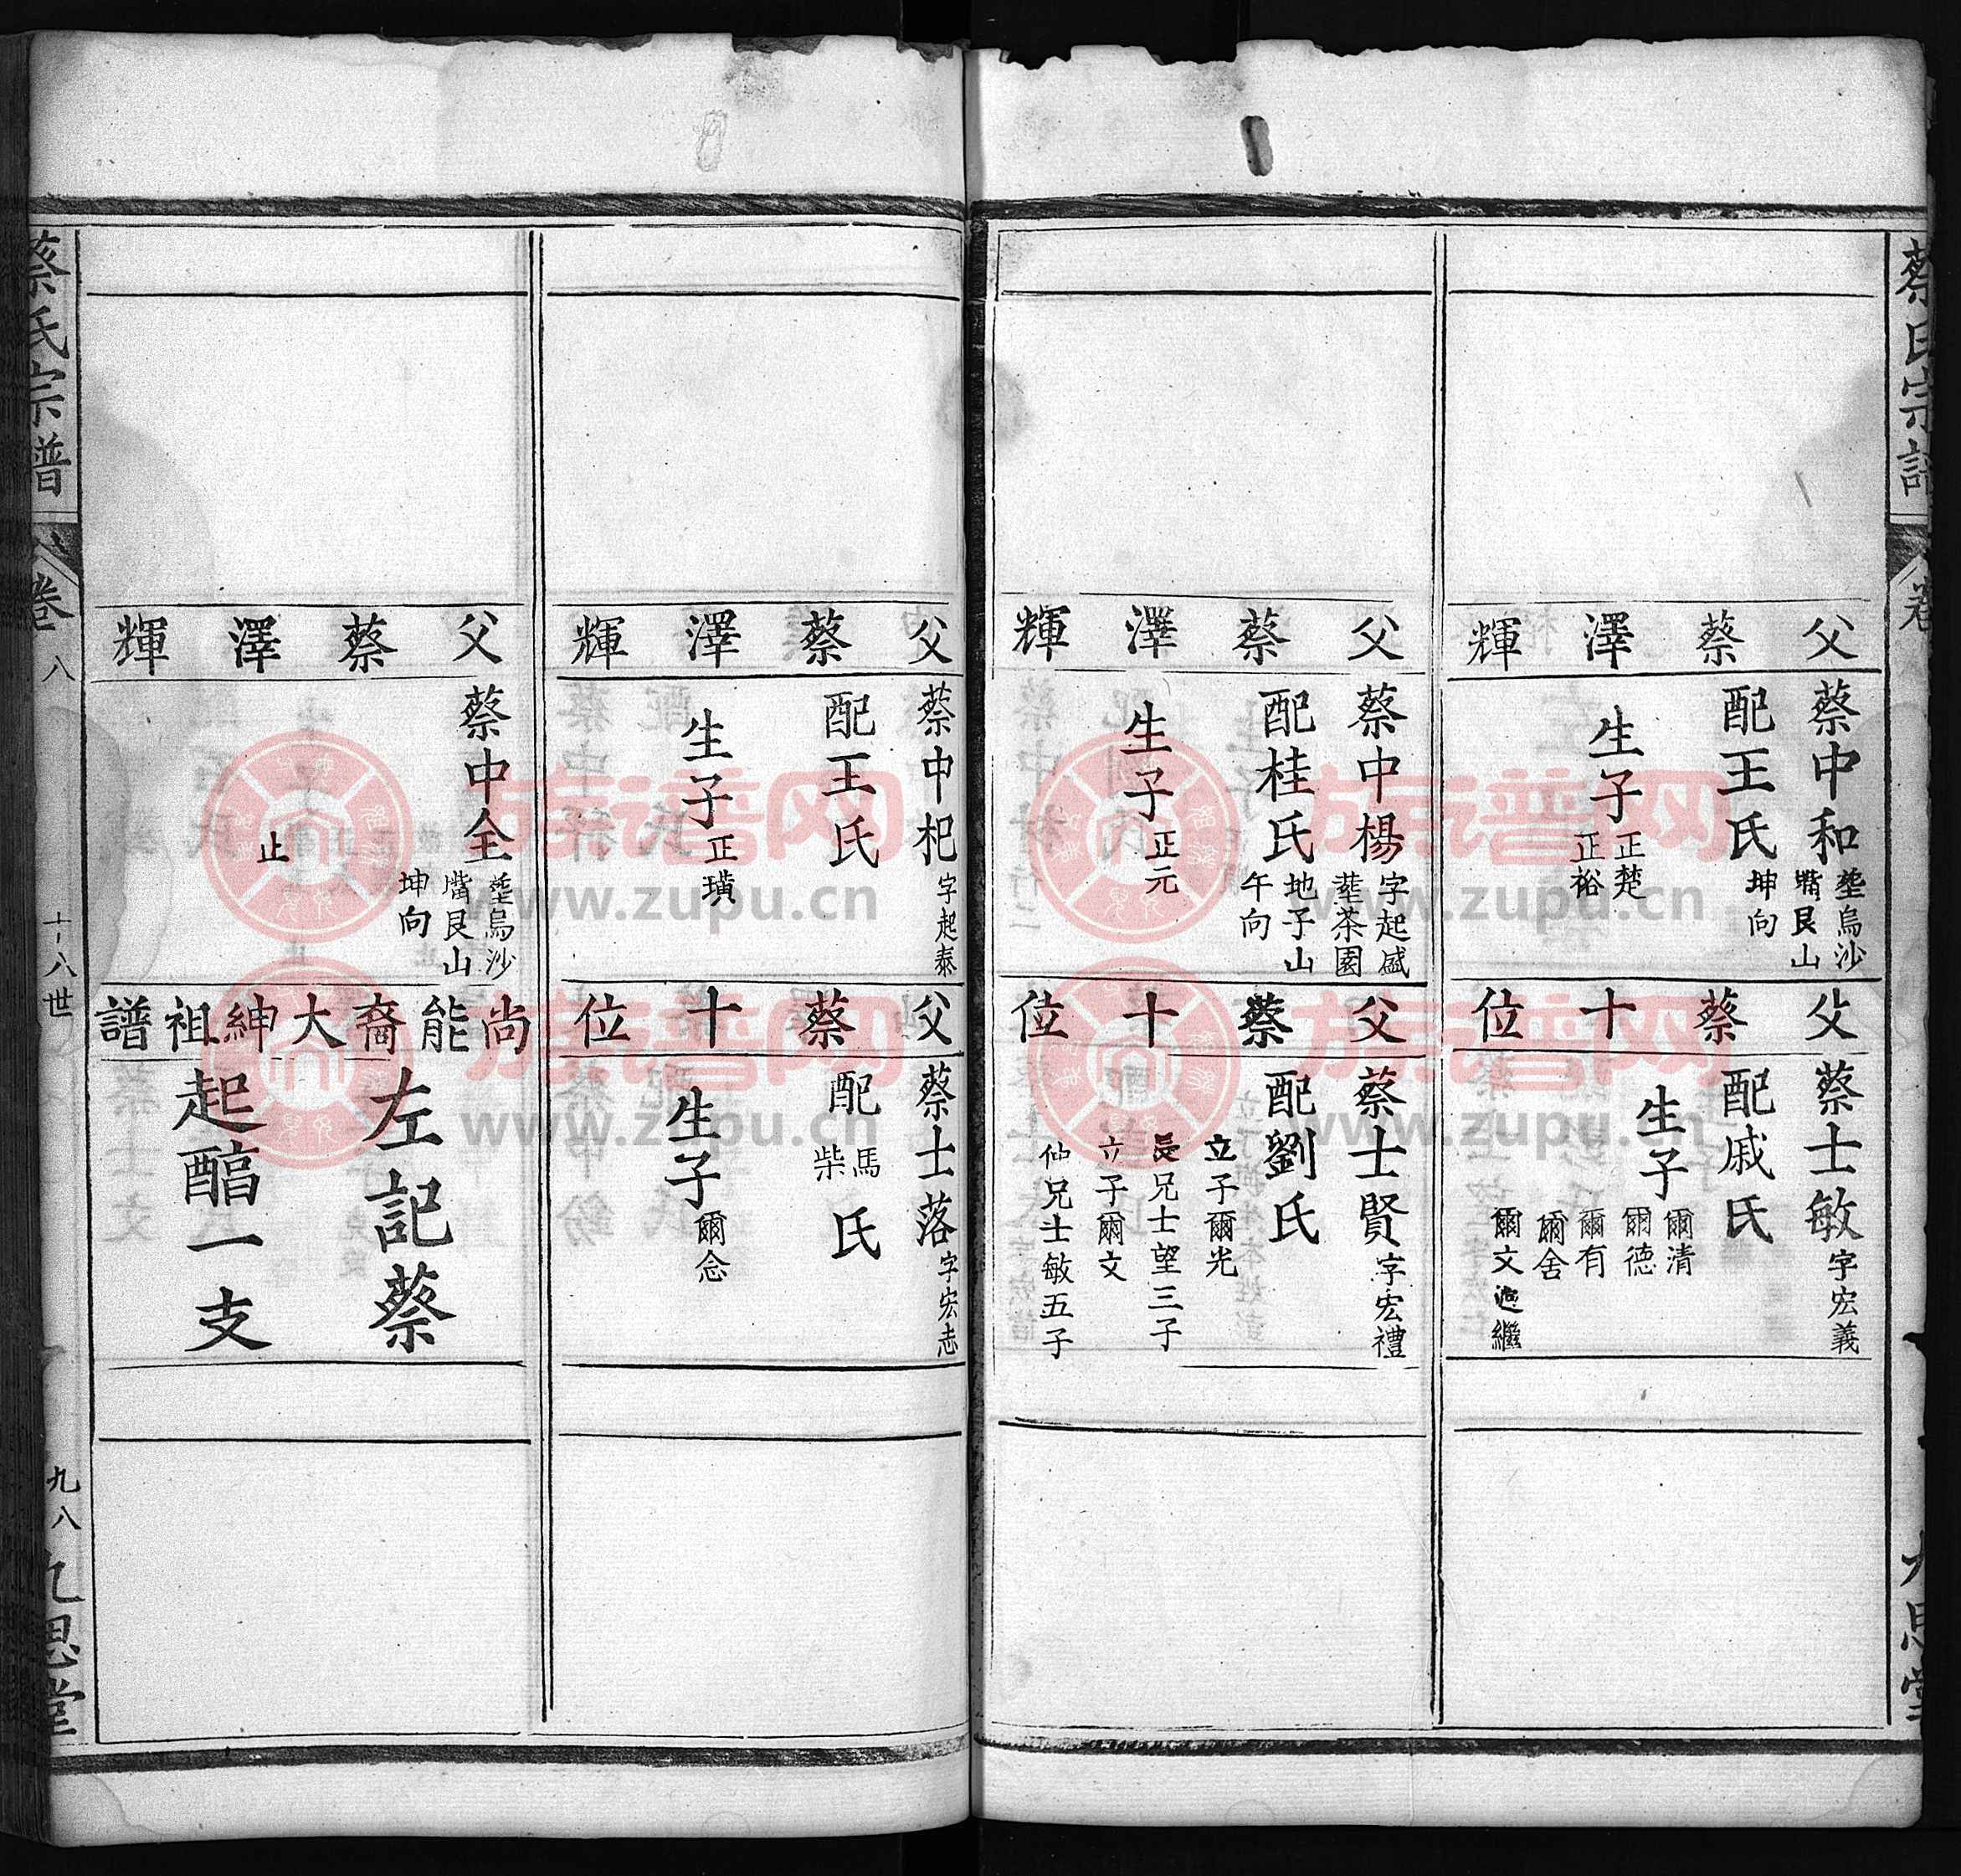 蔡氏宗譜
卷
九思堂
父蔡澤輝
蔡中和
塟烏沙
嘴艮山
坤向
配王氏
生子
正楚
正裕
父蔡十位
蔡士敏
字宏義
配戚氏
生子
爾清
爾德
爾有
爾舍
爾文過繼
父蔡澤輝
蔡中楊
字起盛
塟茶園
地子山
午向
配桂氏
生子
正元
父蔡十位
蔡士賢
字宏禮
配劉氏
立子爾光
長兄士望三子
立子爾文
仙兄士敏五子
父蔡澤輝
蔡中杷
字起泰
配王氏
生子
正璜
父蔡十位
蔡士落
字宏志
配馬
柴
氏
生子
爾念
父蔡澤輝
蔡中全
塟烏沙
嘴艮山
坤向
止
尚能裔大紳祖譜
左記蔡
起醕一支
蔡氏宗譜
卷八
十八世
九八
九思堂
族谱网
www.zupu.cn
族谱网
www.zupu.cn
族谱网
www.zupu.cn
族谱网
www.zupu.cn